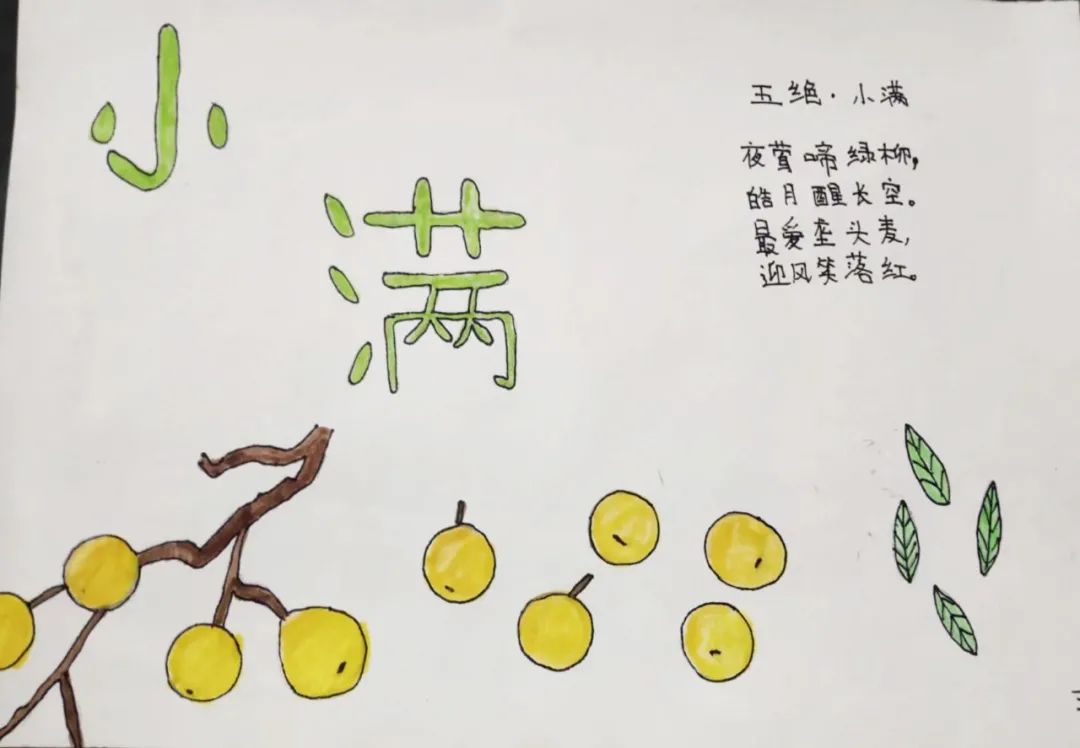 小
满
五绝·小满
夜莺啼绿柳,
皓月醒长空。
最爱垄头麦,
迎风笑落红。